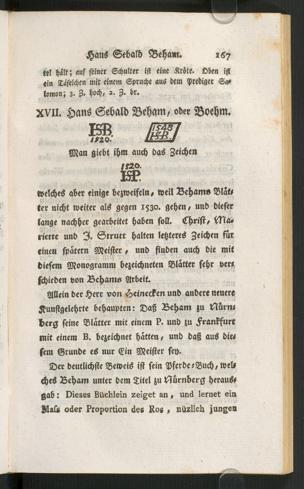 Hans Sebald Beham. 167
tel hält; auf seiner Schulter ist eine Kröte. Oben ist
ein Täfelchen mit einem Spruche aus dem Prediger Sa-
lomon; 3. Z. hoch, 2. Z. br.
XVII. Hans Sebald Beham, oder Boehm.
HSB 1520. 1548 HSB
Man giebt ihm auch das Zeichen
1520. HSP
welches aber einige bezweifeln, weil Behams Blät-
ter nicht weiter als gegen 1530. gehen, und dieser
lange nachher gearbeitet haben soll. Christ, Ma-
riette und J. Strutt halten letzteres Zeichen für
einen spätern Meister, und finden auch die mit
diesem Monogramm bezeichneten Blätter sehr ver-
schieden von Behams Arbeit.
Allein der Herr von Heinecken und andere neuere
Kunstgelehrte behaupten: Daß Beham zu Nürn-
berg seine Blätter mit einem P. und zu Frankfurt
mit einem B. bezeichnet hätten, und daß aus die-
sem Grunde es nur Ein Meister sey.
Der deutlichste Beweis ist sein Pferde-Buch, wel-
ches Beham unter dem Titel zu Nürnberg heraus-
gab: Dieses Büchlein zeiget an, und lernet ein
Maß oder Proportion des Ros, nüzlich jungen